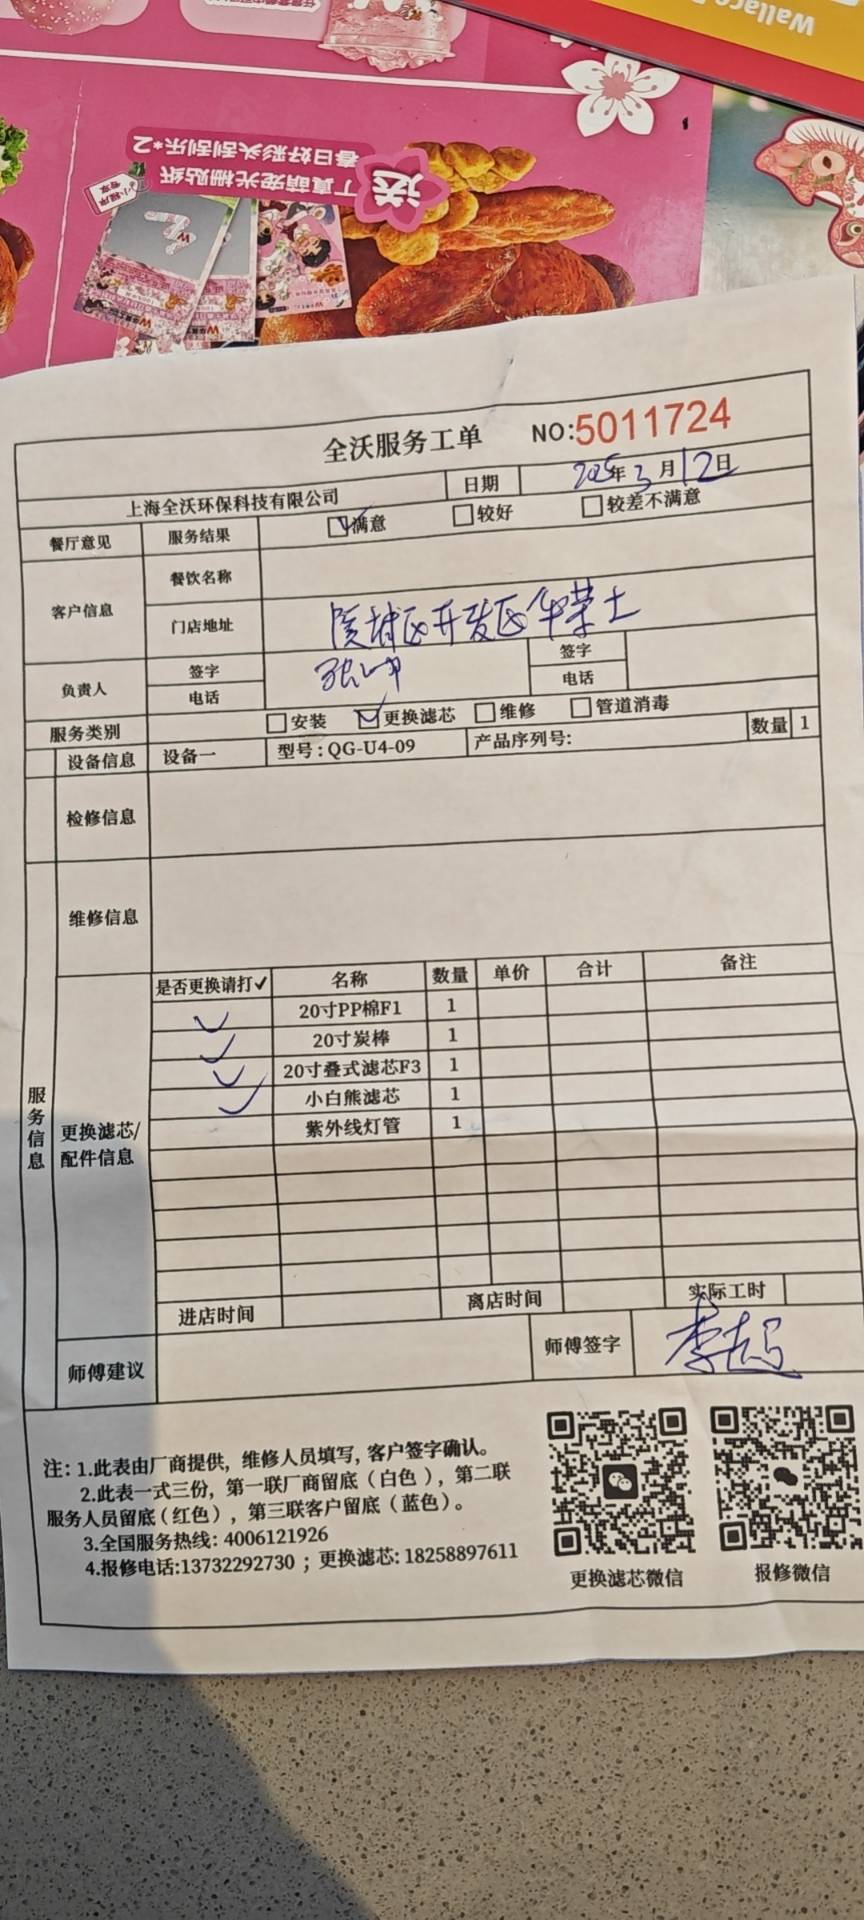 Wallace
送
丁真萌宠光栅贴纸
春日好彩头刮刮乐*2
小程序
专享
全沃服务工单 NO:5011724
上海全沃环保科技有限公司 日期 2025年3月12日
餐厅意见 服务结果 ☑满意 ☐较好 ☐较差不满意
客户信息 餐饮名称
门店地址 开发区华莱士
负责人 签字 签字
电话 电话
服务类别 ☐安装 ☑更换滤芯 ☐维修 ☐管道消毒
设备信息 设备一 型号:QG-U4-09 产品序列号: 数量 1
检修信息
维修信息
服务信息
更换滤芯/配件信息
是否更换请打✓ 名称 数量 单价 合计 备注
✓ 20寸PP棉F1 1
✓ 20寸炭棒 1
✓ 20寸叠式滤芯F3 1
✓ 小白熊滤芯 1
紫外线灯管 1
进店时间 离店时间 实际工时
师傅建议 师傅签字
注: 1.此表由厂商提供, 维修人员填写, 客户签字确认。
2.此表一式三份, 第一联厂商留底(白色), 第二联
服务人员留底(红色), 第三联客户留底(蓝色)。
3.全国服务热线: 4006121926
4.报修电话:13732292730 ; 更换滤芯: 18258897611
更换滤芯微信 报修微信